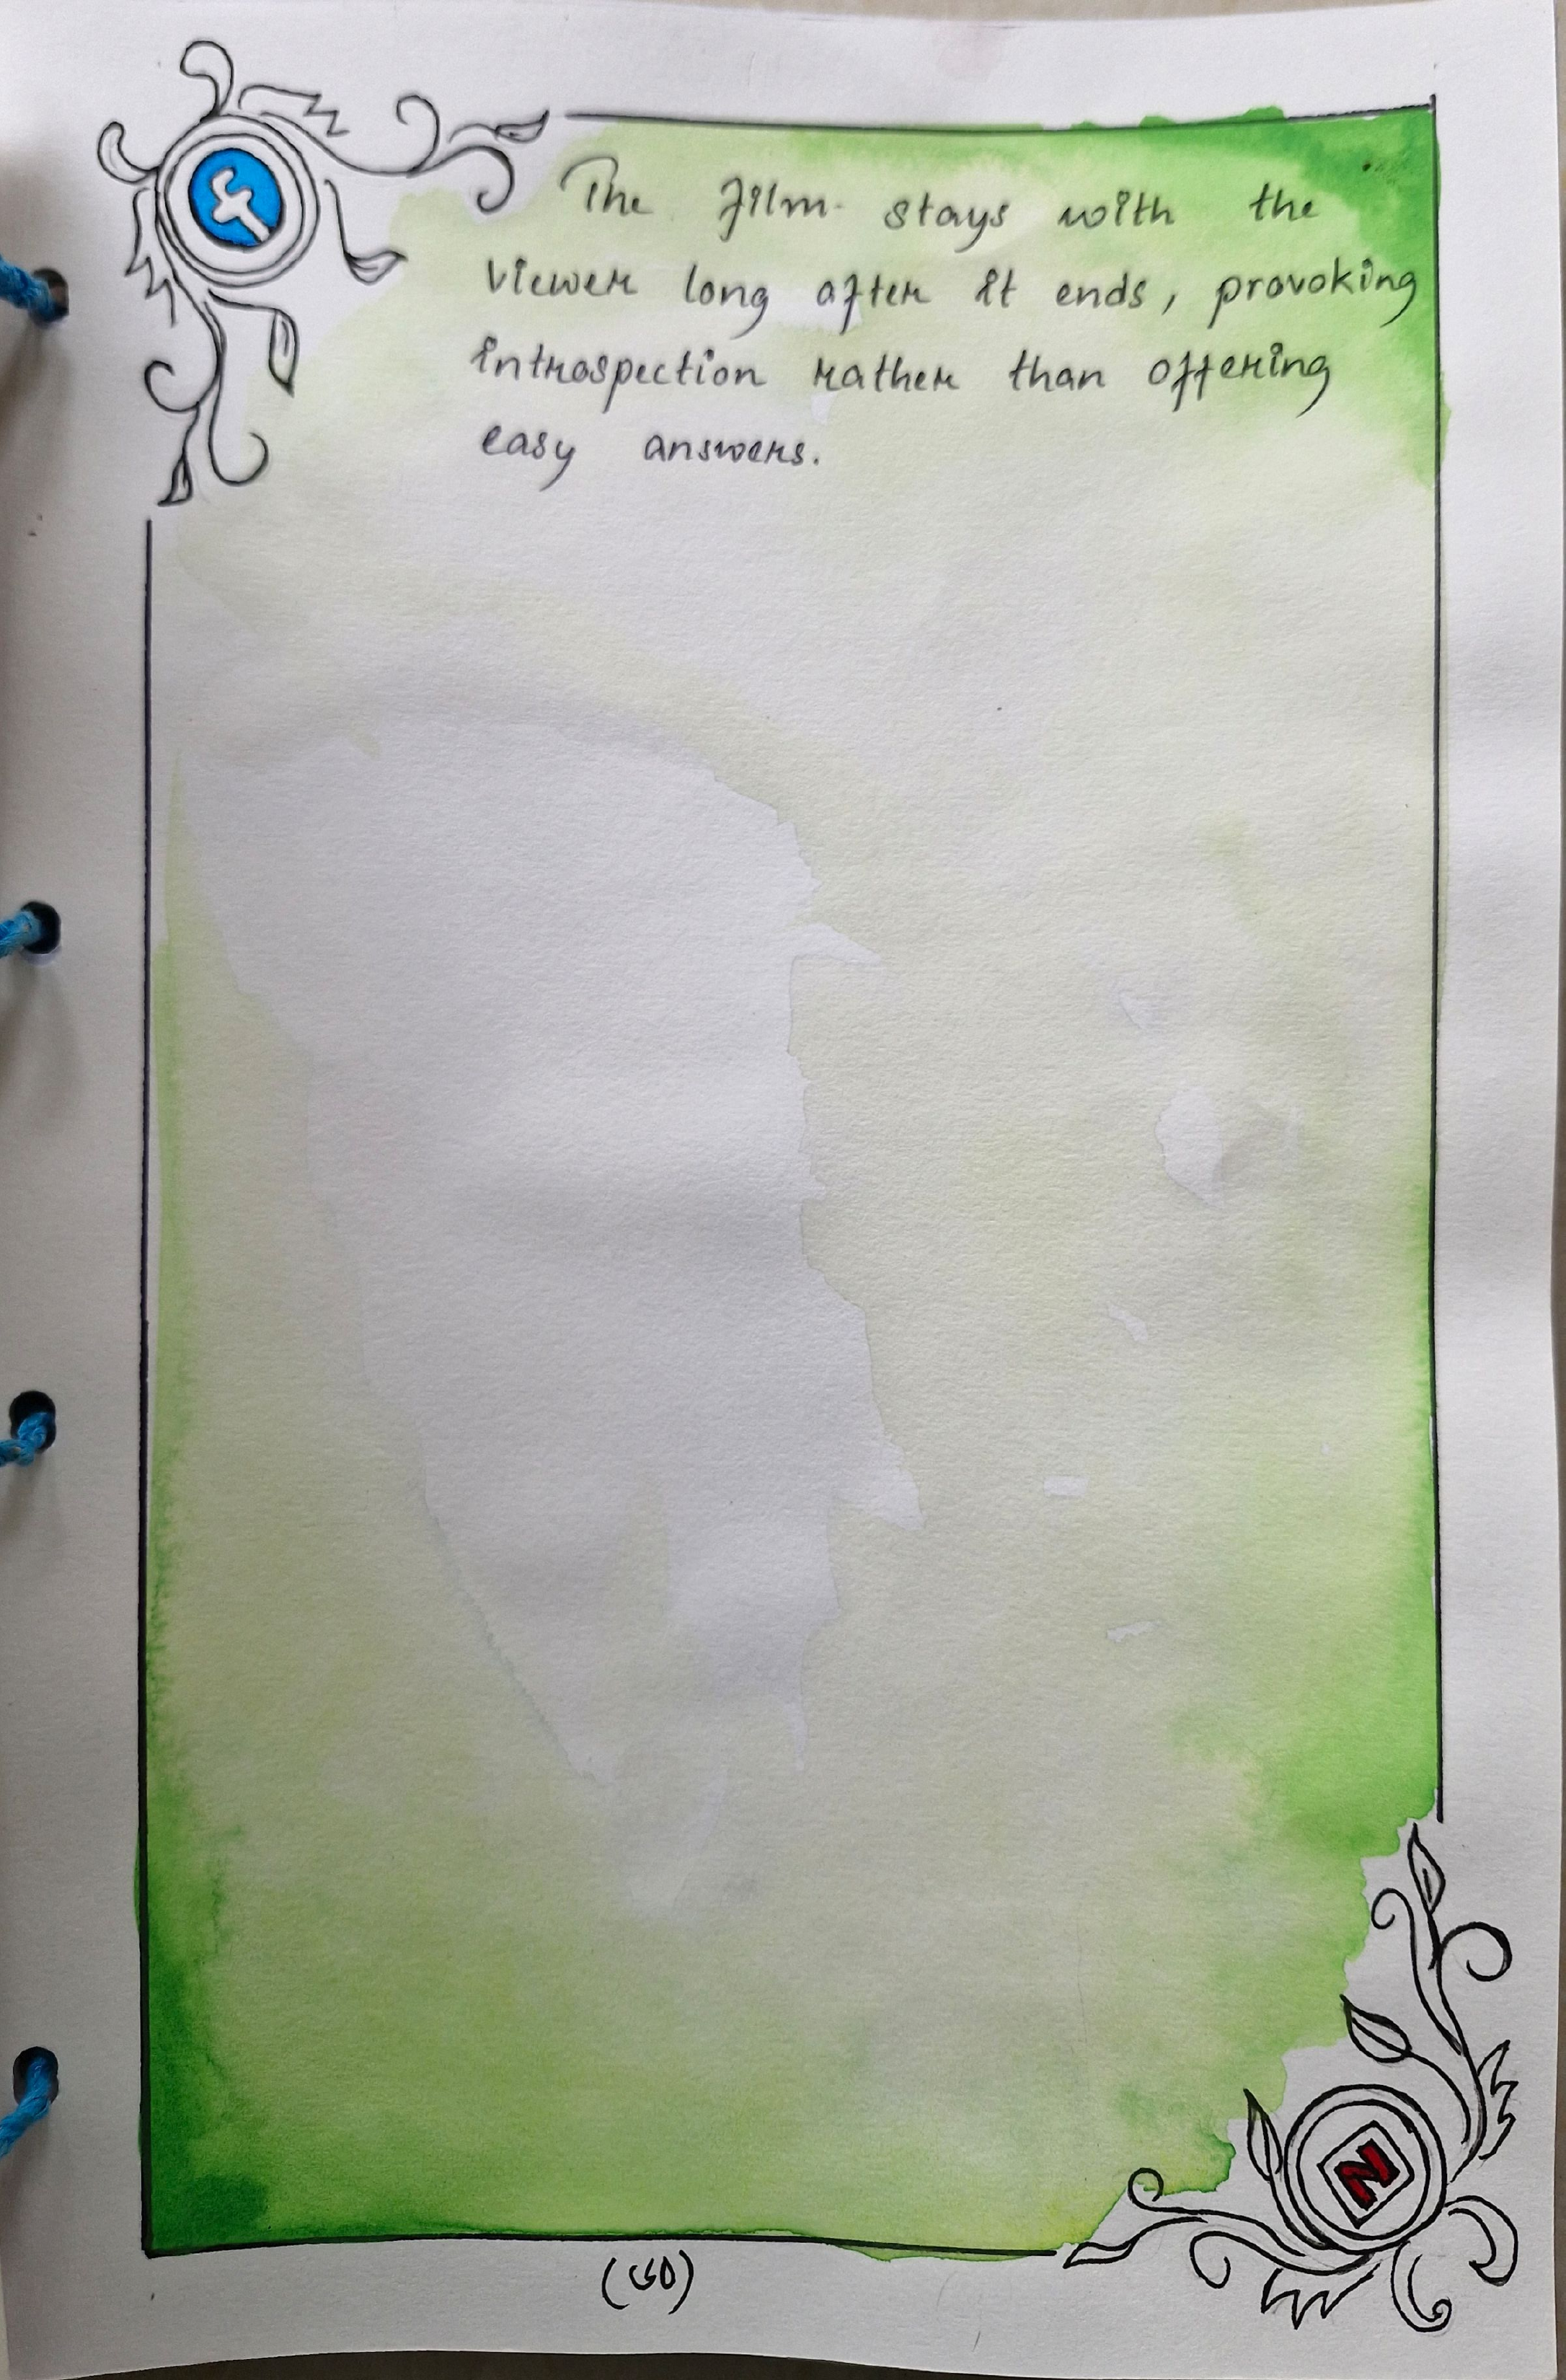 f
The film stays with the
viewer long after it ends, provoking
introspection rather than offering
easy answers.
N